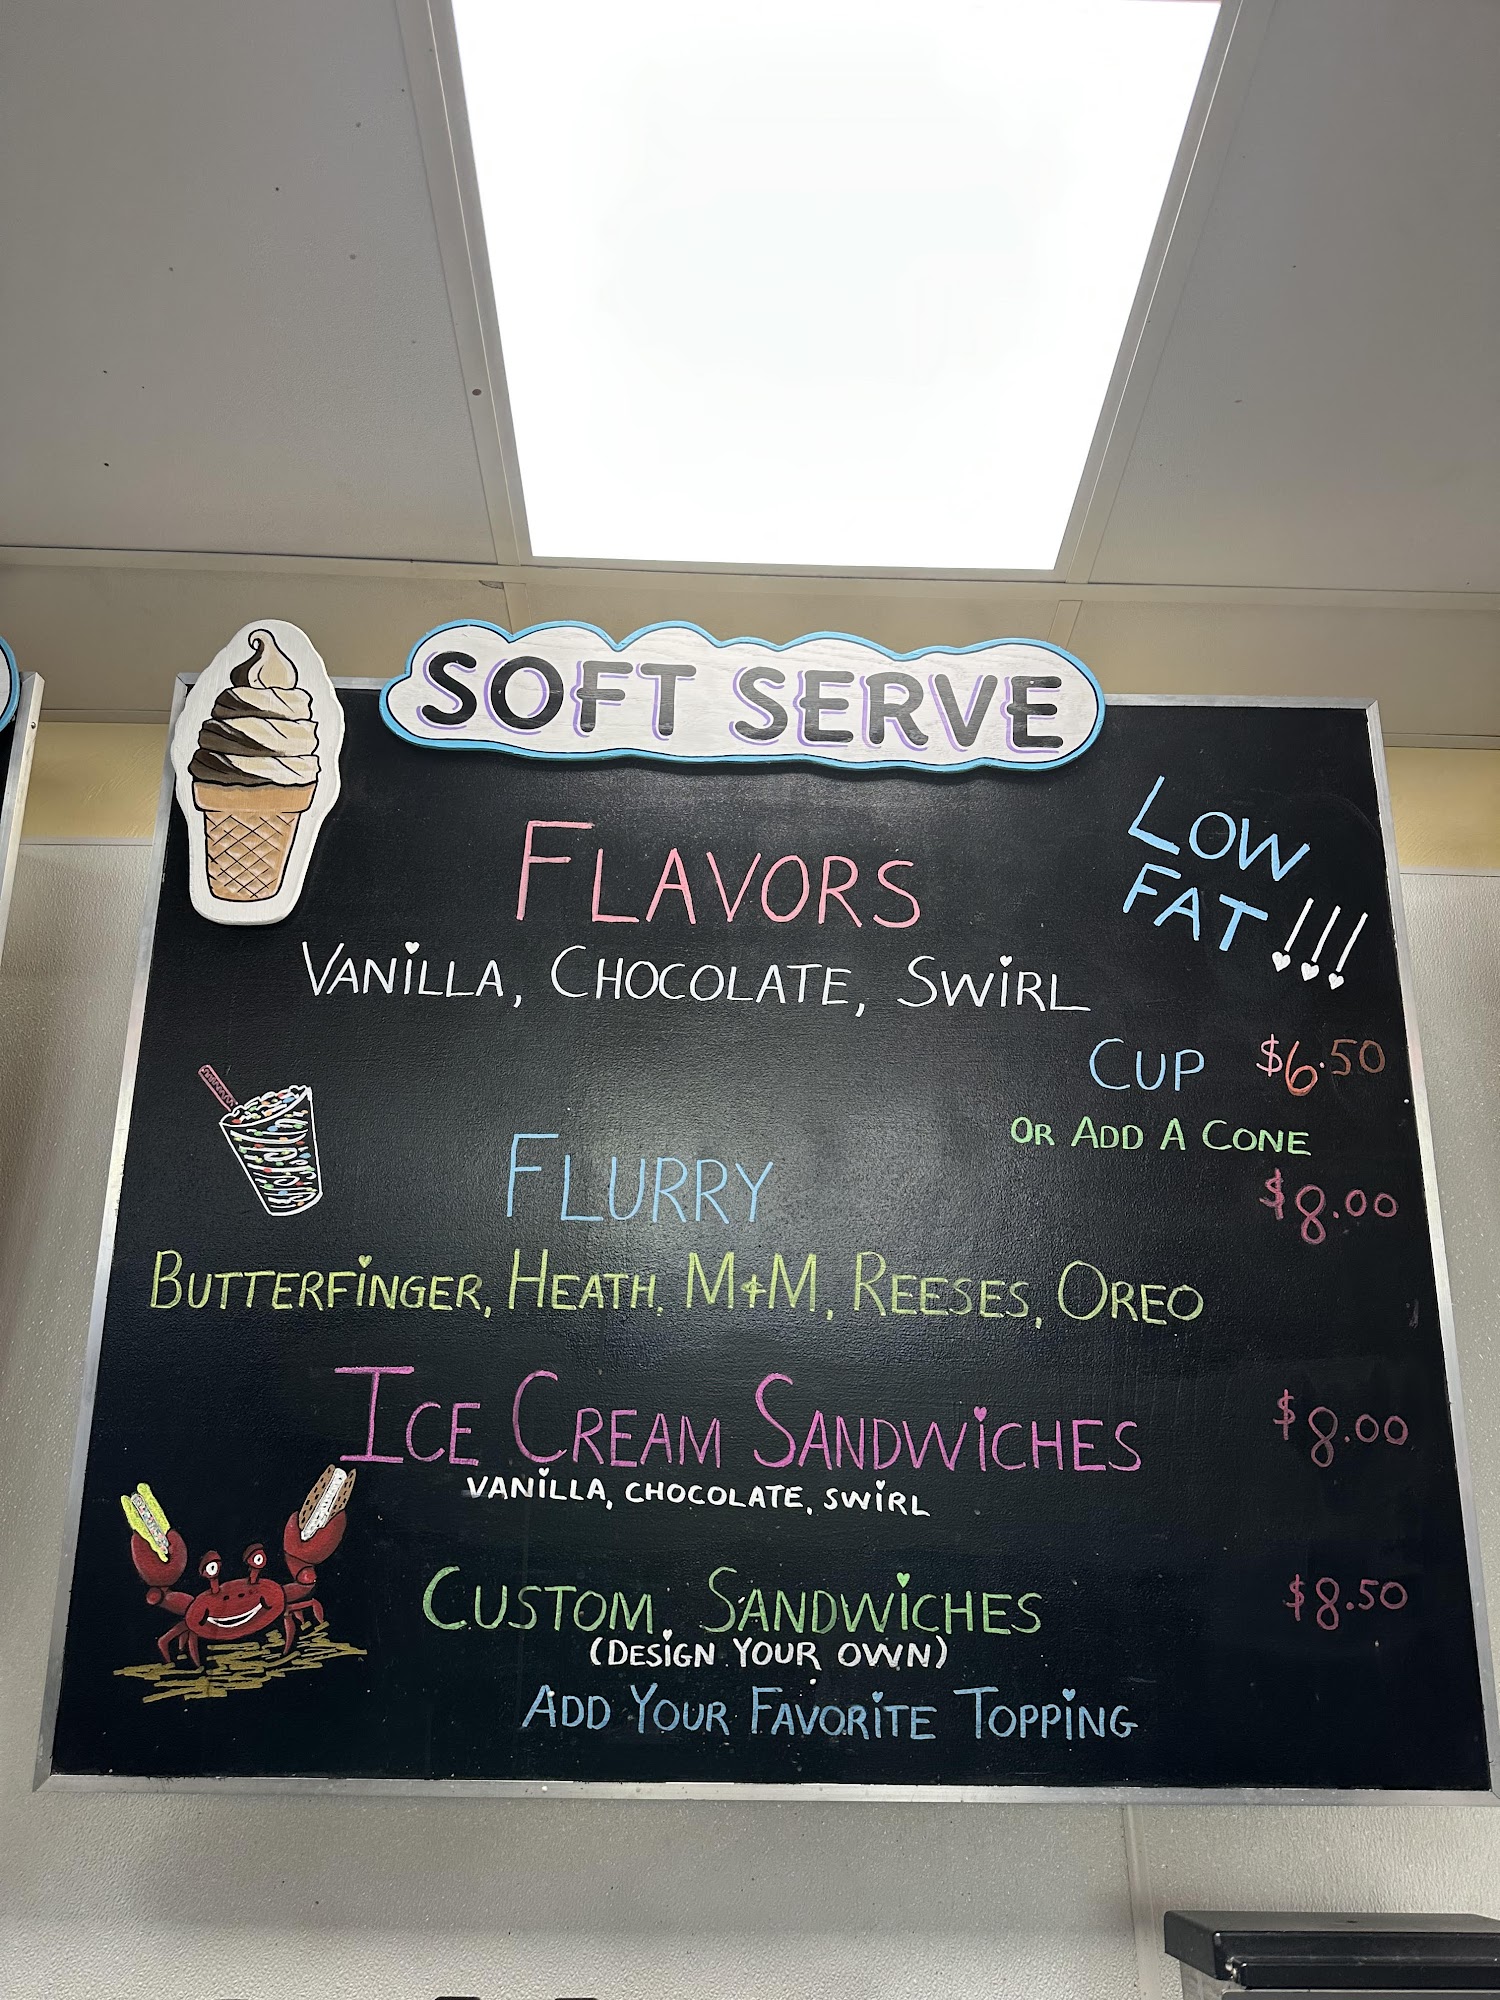 SOFT SERVE
LOW
FAT!!!
FLAVORS
VANILLA, CHOCOLATE, SWIRL
CUP $6.50
OR ADD A CONE
FLURRY $8.00
BUTTERFINGER, HEATH, M&M, REESES, OREO
ICE CREAM SANDWICHES $8.00
VANILLA, CHOCOLATE, SWIRL
CUSTOM SANDWICHES $8.50
(DESIGN YOUR OWN)
ADD YOUR FAVORITE TOPPING